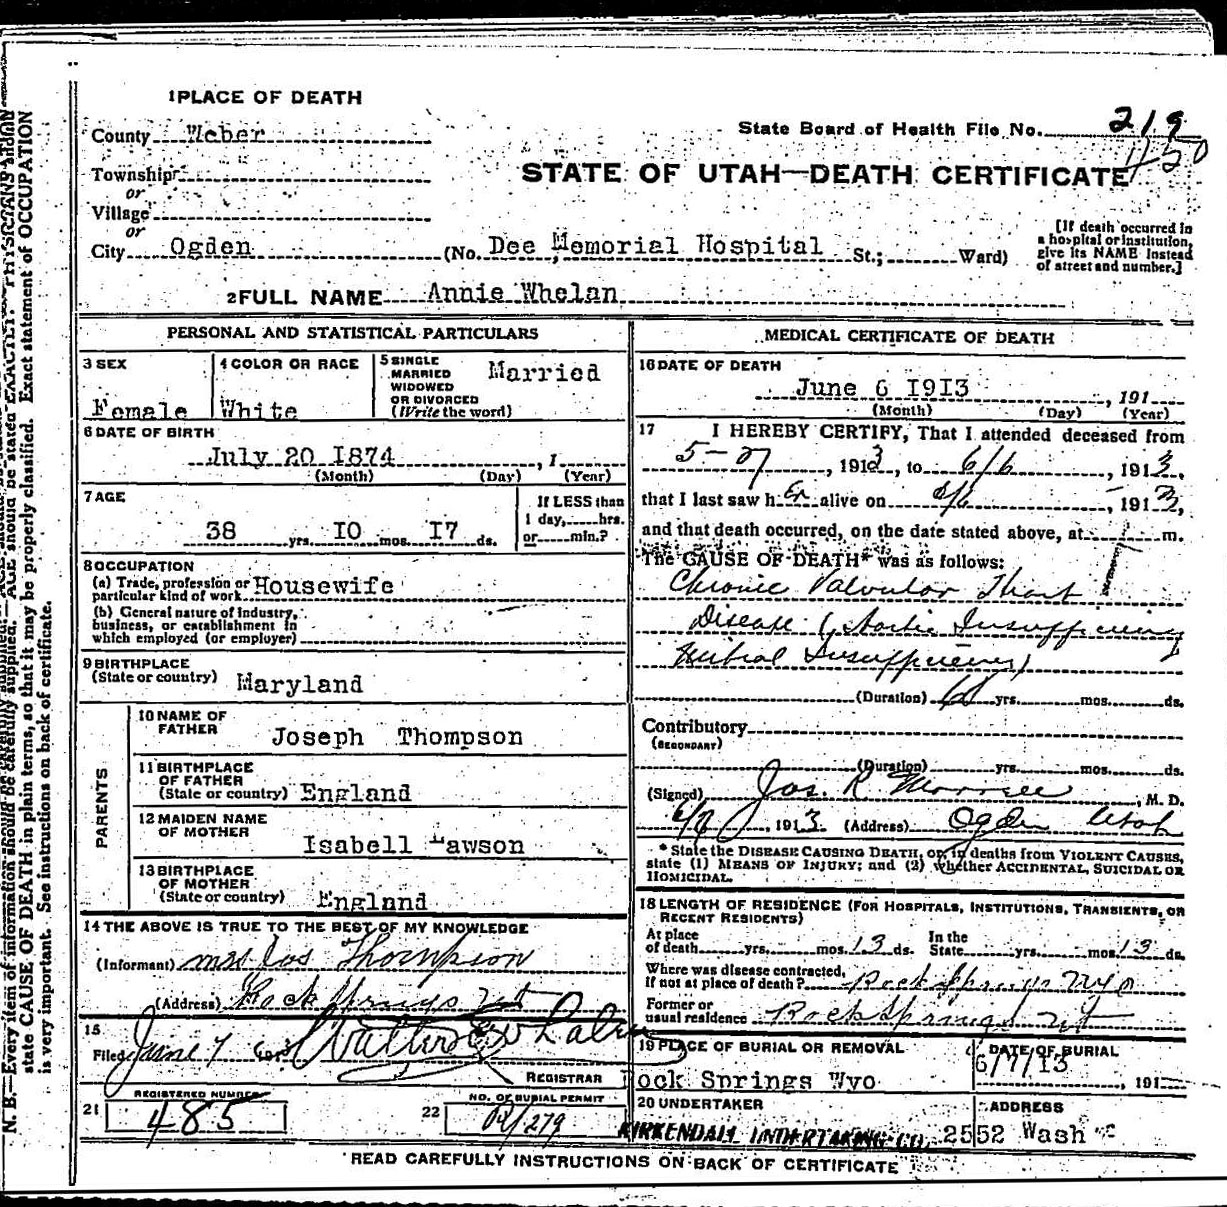 1 PLACE OF DEATH
County Weber
State Board of Health File No. 219
1150
Township
or
Village
or
STATE OF UTAH—DEATH CERTIFICATE
City Ogden (No. Dee Memorial Hospital St.; Ward)
[If death occurred in
a hospital or institution,
give its NAME instead
of street and number.]
2 FULL NAME Annie Whelan
PERSONAL AND STATISTICAL PARTICULARS
3 SEX
Female
4 COLOR OR RACE
White
5 SINGLE
MARRIED
WIDOWED
OR DIVORCED
(Write the word)
Married
6 DATE OF BIRTH
July 20 1874, 1
(Month) (Day) (Year)
7 AGE
38 yrs. 10 mos. 17 ds.
If LESS than
1 day, hrs.
or min.?
8 OCCUPATION
(a) Trade, profession or
particular kind of work Housewife
(b) General nature of industry,
business, or establishment in
which employed (or employer)
9 BIRTHPLACE
(State or country) Maryland
PARENTS
10 NAME OF
FATHER Joseph Thompson
11 BIRTHPLACE
OF FATHER
(State or country) England
12 MAIDEN NAME
OF MOTHER Isabell Lawson
13 BIRTHPLACE
OF MOTHER
(State or country) England
14 THE ABOVE IS TRUE TO THE BEST OF MY KNOWLEDGE
(Informant) Mrs Jos Thompson
(Address) Rock Springs
15
Filed June 7
REGISTRAR
REGISTERED NUMBER
21 485
NO. OF BURIAL PERMIT
22 R/279
MEDICAL CERTIFICATE OF DEATH
16 DATE OF DEATH
June 6 1913, 191
(Month) (Day) (Year)
17 I HEREBY CERTIFY, That I attended deceased from
5-27, 1913, to 6/6, 1913,
that I last saw her alive on 6/6, 1913,
and that death occurred, on the date stated above, at m.
The CAUSE OF DEATH* was as follows:
Chronic Valvular Heart
Disease (Aortic Insufficiency
Mitral Insufficiency)
(Duration) yrs. mos. ds.
Contributory
(SECONDARY)
(Duration) yrs. mos. ds.
(Signed) Jos. R. Morrell, M. D.
1913 (Address) Ogden Utah
* State the DISEASE CAUSING DEATH, or, in deaths from VIOLENT CAUSES,
state (1) MEANS OF INJURY; and (2) whether ACCIDENTAL, SUICIDAL OR
HOMICIDAL.
18 LENGTH OF RESIDENCE (FOR HOSPITALS, INSTITUTIONS, TRANSIENTS, OR
RECENT RESIDENTS)
At place
of death yrs. mos. 13 ds.
In the
State yrs. mos. 13 ds.
Where was disease contracted,
if not at place of death? Rock Springs Wyo
Former or
usual residence Rock Springs
19 PLACE OF BURIAL OR REMOVAL
Rock Springs Wyo
DATE OF BURIAL
6/7/13, 191
20 UNDERTAKER
KIRKENDALL UNDERTAKING CO.
ADDRESS
2552 Wash
READ CAREFULLY INSTRUCTIONS ON BACK OF CERTIFICATE
N. B.—Every item of information should be carefully supplied. AGE should be stated EXACTLY. PHYSICIANS should
state CAUSE OF DEATH in plain terms, so that it may be properly classified. Exact statement of OCCUPATION
is very important. See instructions on back of certificate.